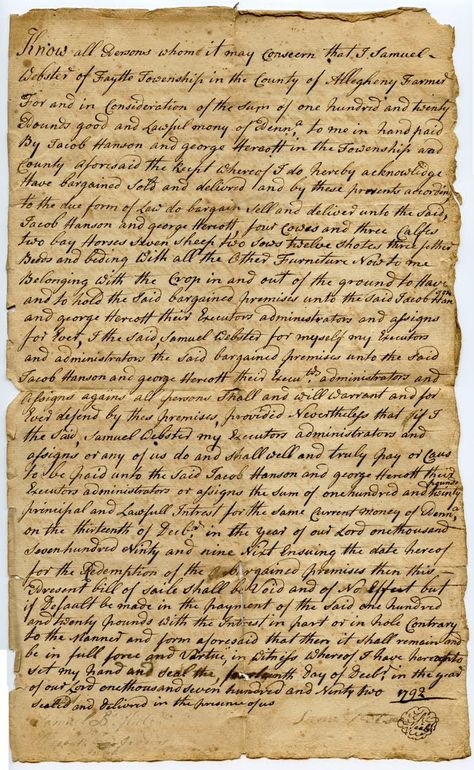 Know all Persons whome it may Concern that I Samuel
Webster of Faytte Township in the County of Allegheny Farmer
For and in Consideration of the Sum of one hundred and twenty
Pounds good and Lawful mony of Penna to me in hand paid
By Jacob Hanson and george Hercott in the Township and
County aforesaid the Recipt Whereof I do hereby acknowlidge
Have bargained Sold and delivred and by these presents according
to the due form of Law do bargain Sell and deliver unto the Said,
Jacob Hanson and george Hercott, four Cowes and three Calfes
two bay Horses Seven Sheep two Sows twelve Shotes three fether
Beds and beding With all the Other Furniture Now to me
Belonging With the Crop in and out of the ground to Have
and to hold the Said bargained premises unto the Said Jacob Hanson
and george Hercott their Executors administrators and assigns
for Ever, I the Said Samuel Webster for myself my Executors
and administrators the Said bargained premises unto the Said
Jacob Hanson and george Hercott their Execu administrators and
assigns agains all persons Shall and will Warrant and for
Ever defend by thes premises, provided Nevertheless that if I
the Said, Samuel Webster my Executors administrators and
assigns or any of us do and Shall well and truly pay or Caus
to be paid unto the Said Jacob Hanson and george Hercott their
Executors administrators or assigns the Sum of one hundred and twenty pounds
principal and Lawfull Intrest for the Same Current Money of Penna
on the thirteenth of Decbr in the year of our Lord one thousand
Seven hundred Ninty and nine Next Ensuing the date hereof
for the Redemption of the Bargained premises then this
Present bill of Saile Shall be Void and of No Effect but
if Default be made in the payment of the Said one hundred
and twenty pounds With the Intrest in part or in hole Contrary
to the Manner and form aforesaid that then it Shall remain and
be in full force and Virtue, in Witness Whereof I have hereunto
set my hand and seal the, day of Decbr in the year
of our Lord one thousand seven hundred and Ninty two 1792
sealed and delivered in the presence of us